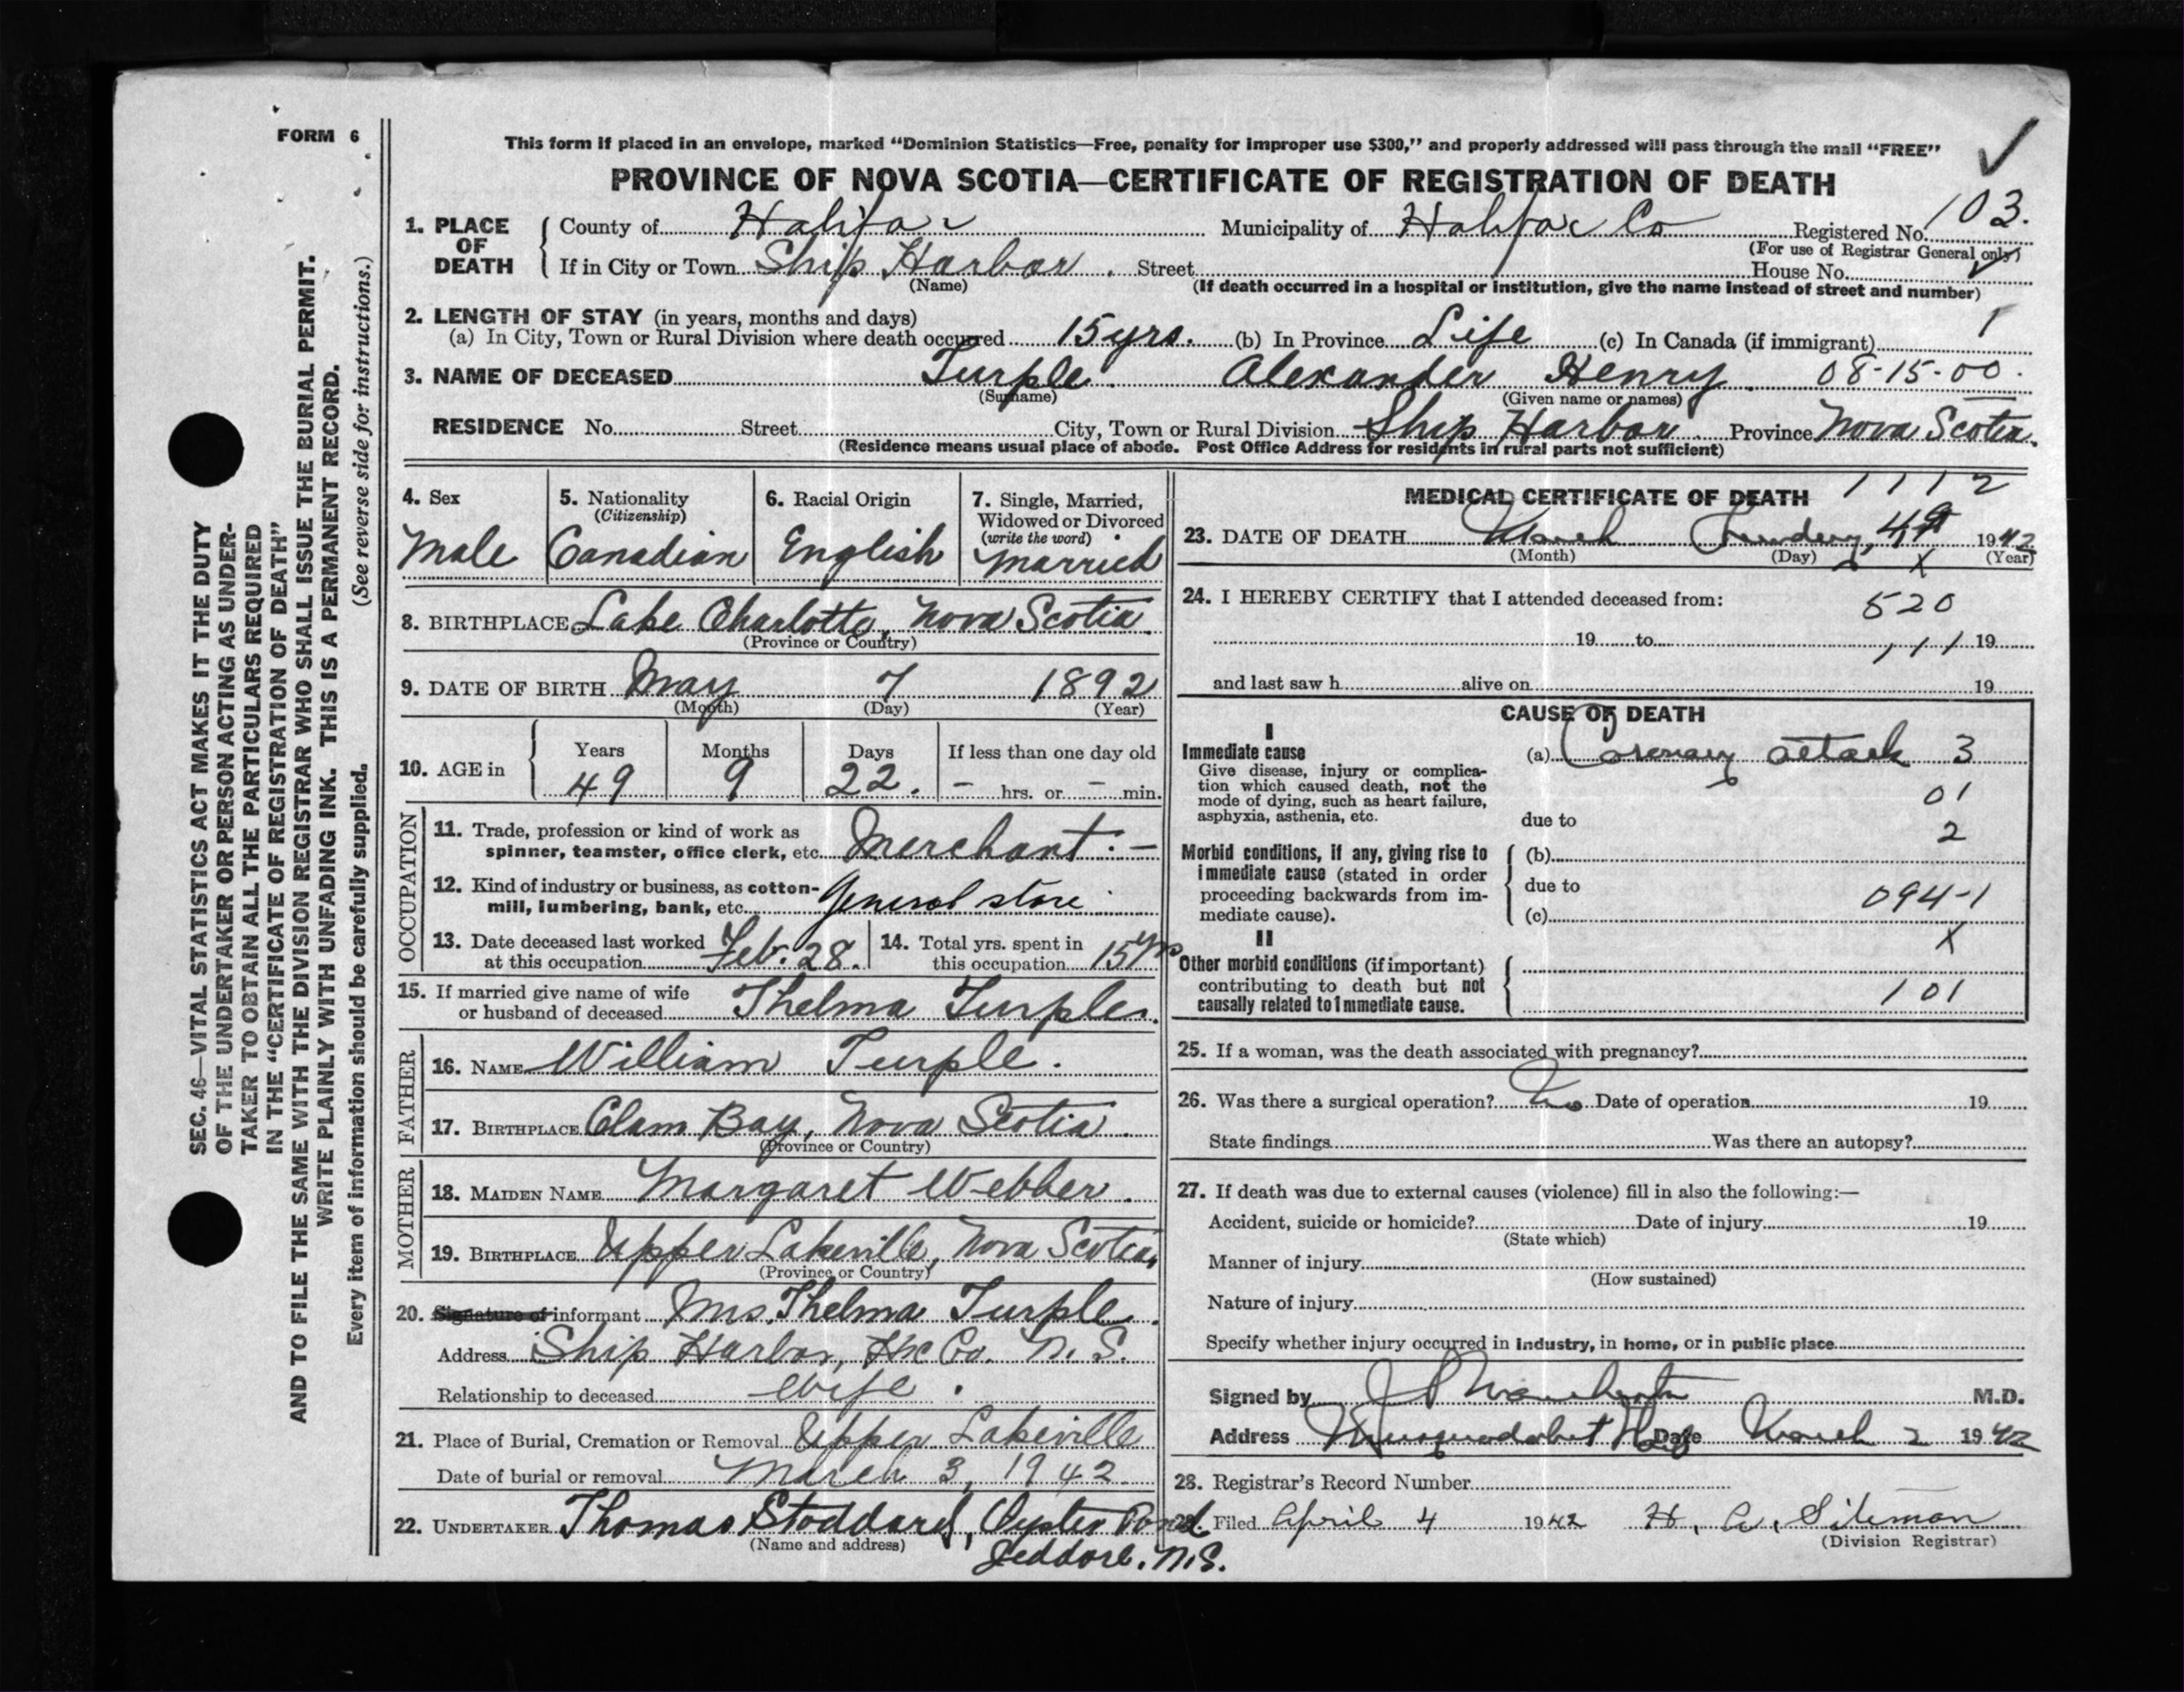 FORM 6
This form if placed in an envelope, marked "Dominion Statistics—Free, penalty for improper use $300," and properly addressed will pass through the mail "FREE"
PROVINCE OF NOVA SCOTIA—CERTIFICATE OF REGISTRATION OF DEATH
103.
1. PLACE OF DEATH County of Halifax Municipality of Halifax Co Registered No.
(For use of Registrar General only)
If in City or Town Ship Harbor. Street House No.
(Name) (If death occurred in a hospital or institution, give the name instead of street and number)
2. LENGTH OF STAY (in years, months and days)
(a) In City, Town or Rural Division where death occurred 15 yrs. (b) In Province Life (c) In Canada (if immigrant) 1
3. NAME OF DECEASED Turple Alexander Henry. 08-15-00.
(Surname) (Given name or names)
RESIDENCE No. Street City, Town or Rural Division Ship Harbor Province Nova Scotia.
(Residence means usual place of abode. Post Office Address for residents in rural parts not sufficient)
4. Sex
Male
5. Nationality
(Citizenship)
Canadian
6. Racial Origin
English
7. Single, Married,
Widowed or Divorced
(write the word)
Married
8. BIRTHPLACE Lake Charlotte, Nova Scotia.
(Province or Country)
9. DATE OF BIRTH May 7 1892
(Month) (Day) (Year)
10. AGE in Years Months Days If less than one day old
49 9 22. – hrs. or – min.
OCCUPATION
11. Trade, profession or kind of work as
spinner, teamster, office clerk, etc. Merchant.—
12. Kind of industry or business, as cotton-
mill, lumbering, bank, etc. General store
13. Date deceased last worked
at this occupation Feb. 28.
14. Total yrs. spent in
this occupation 15 yrs
15. If married give name of wife
or husband of deceased Thelma Turple.
FATHER
16. NAME William Turple.
17. BIRTHPLACE Clam Bay, Nova Scotia.
(Province or Country)
MOTHER
18. MAIDEN NAME Margaret Webber.
19. BIRTHPLACE Upper Lakeville, Nova Scotia,
(Province or Country)
20. Signature of informant Mrs. Thelma Turple.
Address Ship Harbor, Hfx Co. N.S.
Relationship to deceased wife.
21. Place of Burial, Cremation or Removal Upper Lakeville
Date of burial or removal March 3, 1942.
22. UNDERTAKER Thomas Stoddard, Oyster Pond
(Name and address) Jeddore. N.S.
MEDICAL CERTIFICATE OF DEATH 1112
23. DATE OF DEATH March 1942
(Month) (Day) (Year)
X
24. I HEREBY CERTIFY that I attended deceased from: 520
19 to 111 19
and last saw h alive on 19
CAUSE OF DEATH
I
Immediate cause (a) Coronary attack 3
Give disease, injury or complica-
tion which caused death, not the
mode of dying, such as heart failure,
asphyxia, asthenia, etc.
01
due to
2
Morbid conditions, if any, giving rise to
immediate cause (stated in order
proceeding backwards from im-
mediate cause).
(b)
due to
094-1
(c)
X
II
Other morbid conditions (if important)
contributing to death but not
causally related to immediate cause.
101
25. If a woman, was the death associated with pregnancy?
26. Was there a surgical operation? No Date of operation 19
State findings Was there an autopsy?
27. If death was due to external causes (violence) fill in also the following:—
Accident, suicide or homicide? Date of injury 19
(State which)
Manner of injury
(How sustained)
Nature of injury
Specify whether injury occurred in industry, in home, or in public place
Signed by M.D.
Address Musquodoboit Date March 2 1942
28. Registrar's Record Number
Filed April 4 1942 H. A. Siteman
(Division Registrar)
SEC. 46—VITAL STATISTICS ACT MAKES IT THE DUTY
OF THE UNDERTAKER OR PERSON ACTING AS UNDER-
TAKER TO OBTAIN ALL THE PARTICULARS REQUIRED
IN THE "CERTIFICATE OF REGISTRATION OF DEATH"
AND TO FILE THE SAME WITH THE DIVISION REGISTRAR WHO SHALL ISSUE THE BURIAL PERMIT.
WRITE PLAINLY WITH UNFADING INK. THIS IS A PERMANENT RECORD.
Every item of information should be carefully supplied. (See reverse side for instructions.)